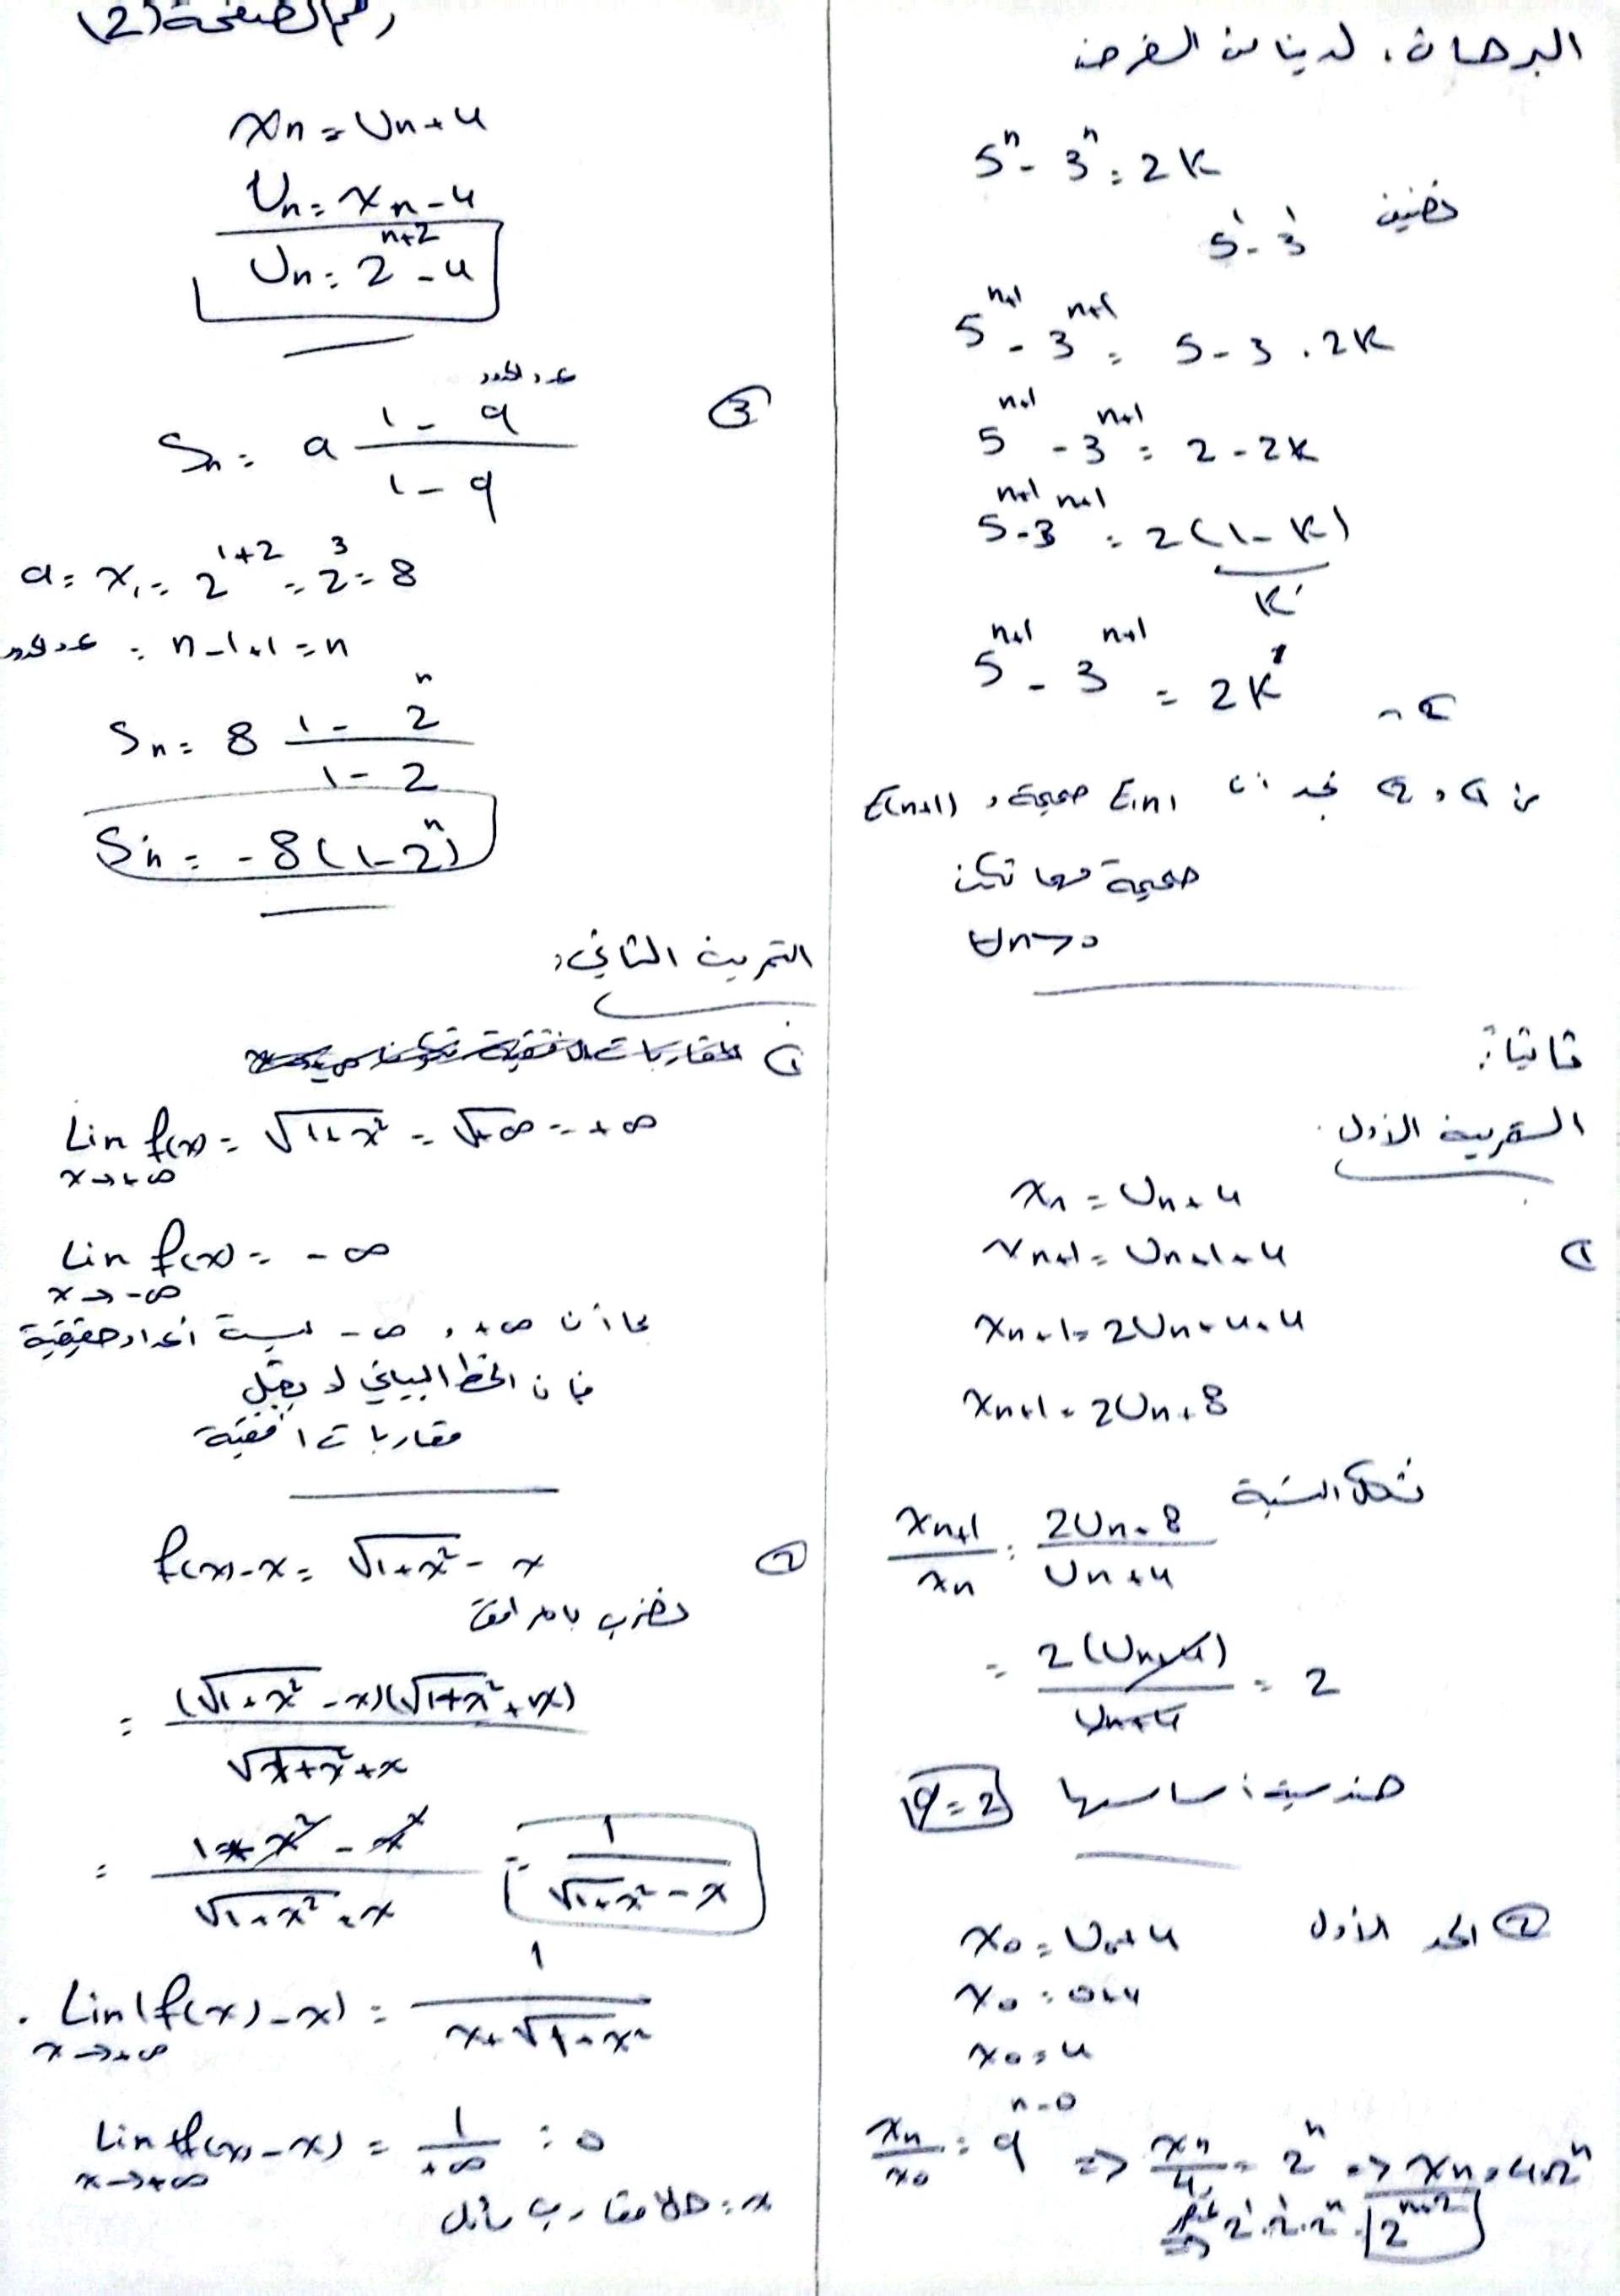 رقم الصفحة (2)
البرهان: لدينا من الفرض
5^n - 3^n = 2K
نضيف
5^1 - 3^1
5^{n+1} - 3^{n+1} = 5 - 3 . 2K
5^{n+1} - 3^{n+1} = 2 - 2K
5^{n+1} - 3^{n+1} = 2(1 - K)
K'
5^{n+1} - 3^{n+1} = 2K' ②
من ① و ② نجد أن E(n) صحيحة و E(n+1)
صحيحة مهما تكن
∀n>0
ثانياً:
التمرين الأول
x_n = U_n + 4
① x_{n+1} = U_{n+1} + 4
x_{n+1} = 2U_n + 4 + 4
x_{n+1} = 2U_n + 8
نشكل النسبة
x_{n+1}/x_n = (2U_n + 8)/(U_n + 4)
= 2(U_n + 4)/(U_n + 4) = 2
هندسية أساسها q = 2
② الحد الأول x_0 = U_0 + 4
x_0 = 0 + 4
x_0 = 4
x_n/x_0 = q^{n-0} => x_n/4 = 2^n => x_n = 4 . 2^n
=> 2^1 . 2^1 . 2^n = 2^{n+2}
x_n = U_n + 4
U_n = x_n - 4
U_n = 2^{n+2} - 4
③ S_n = a (1 - q^{عدد الحدود})/(1 - q)
a = x_1 = 2^{1+2} = 2^3 = 8
عدد الحدود = n - 1 + 1 = n
S_n = 8 (1 - 2^n)/(1 - 2)
S_n = -8(1 - 2^n)
التمرين الثاني:
①
Lim f(x) = √(1+x²) = √+∞ = +∞
x→+∞
Lim f(x) = -∞
x→-∞
بما أن +∞ و -∞ ليست أعداد حقيقية
فإن الخط البياني لا يقبل
مقاربات افقية
② f(x) - x = √(1+x²) - x
نضرب بالمرافق
= (√(1+x²) - x)(√(1+x²) + x)/(√(1+x²) + x)
= (1 + x² - x²)/(√(1+x²) + x) = 1/(√(1+x²) - x)
. Lim (f(x) - x) = 1/(x + √(1+x²))
x→+∞
Lim (f(x) - x) = 1/+∞ = 0
x→+∞
x = Δ مقارب مائل